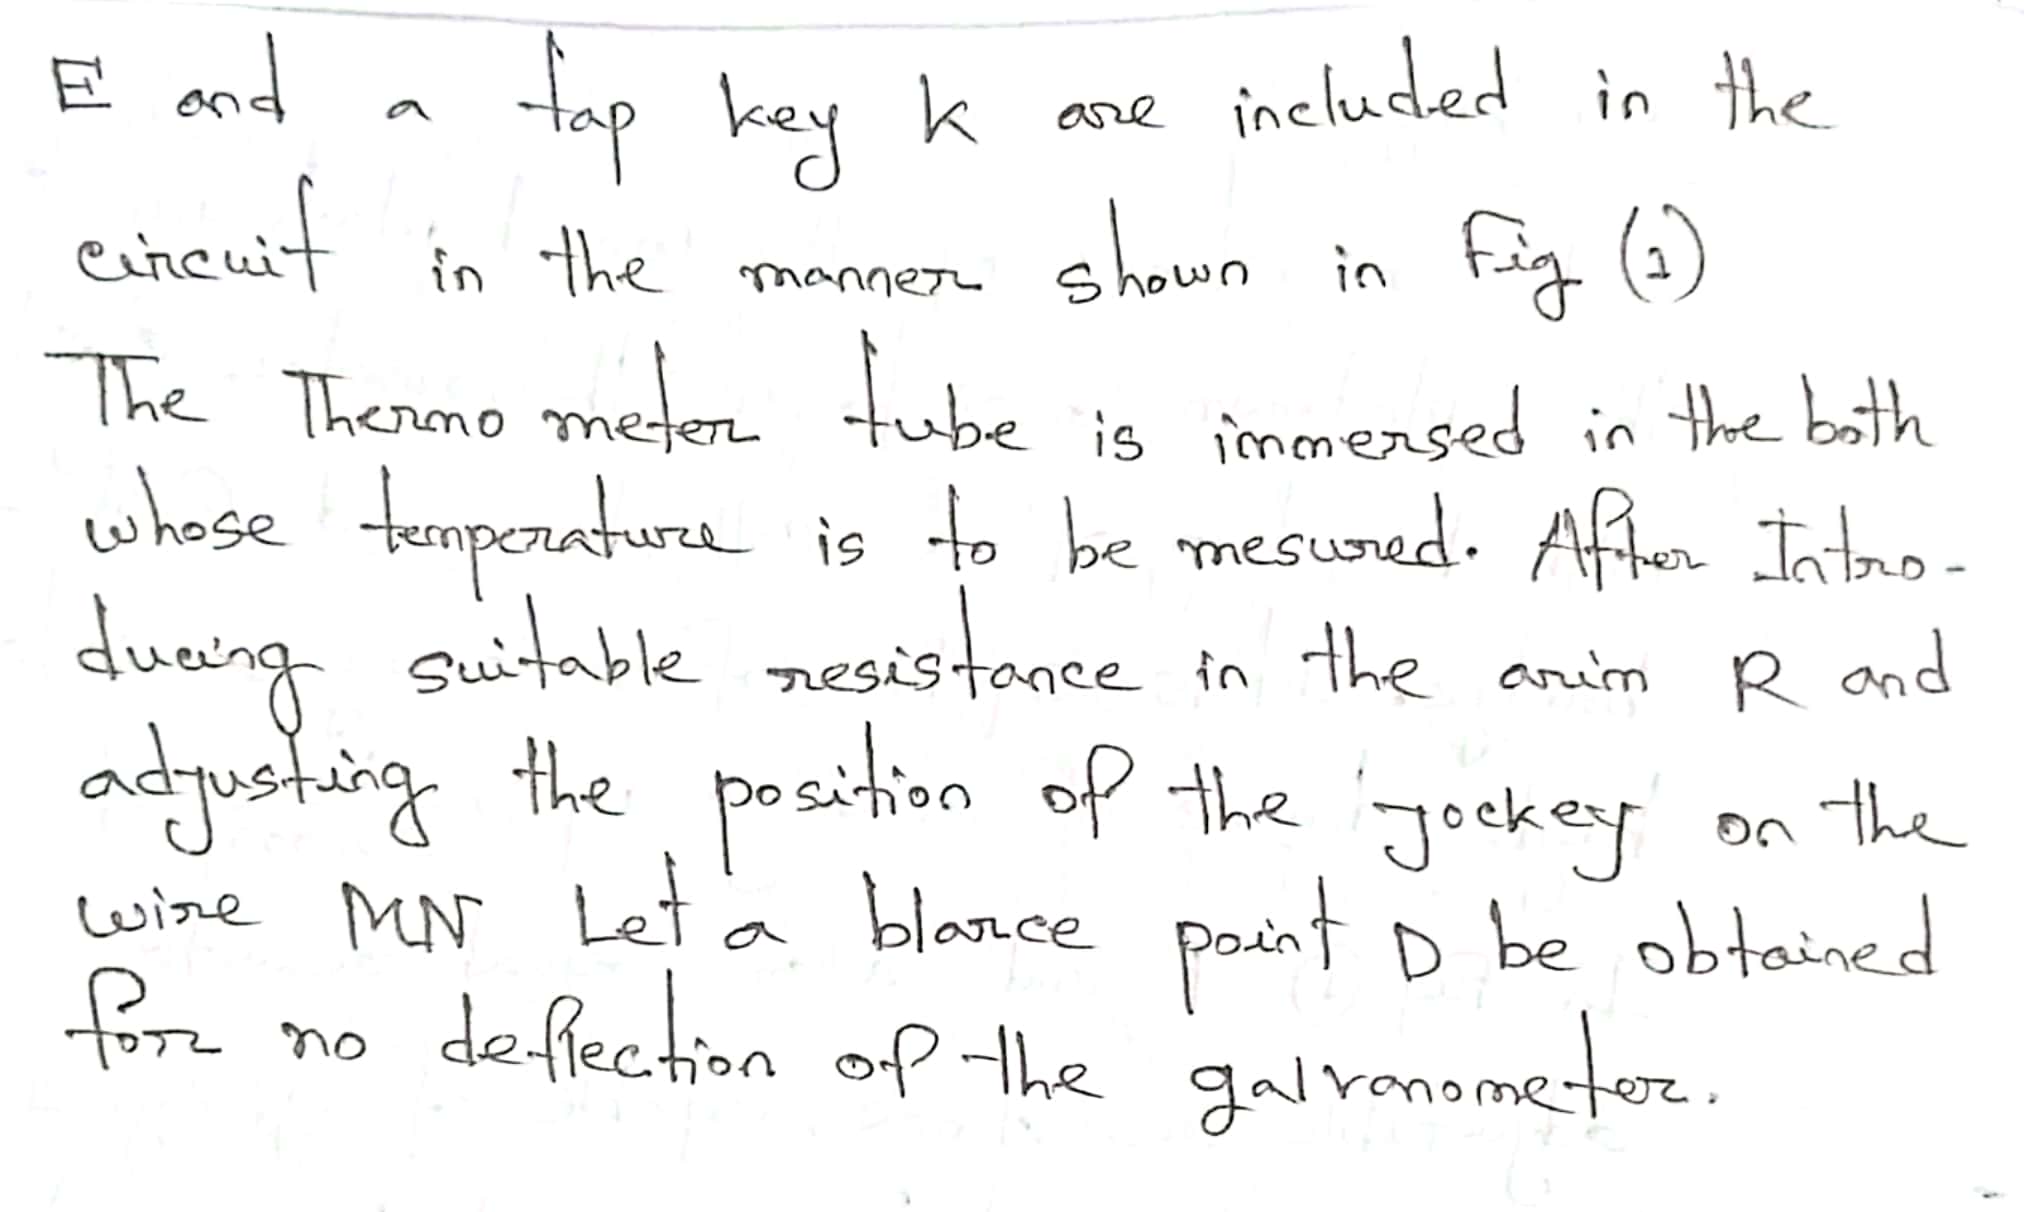 E and a tap key k are included in the
circuit in the manner shown in Fig (1)
The Thermo meter tube is immersed in the both
whose temperature is to be mesured. After Intro-
ducing suitable resistance in the arim R and
adjusting the position of the jockey on the
wire MN Let a blance point D be obtained
for no deflection of the galvanometer.